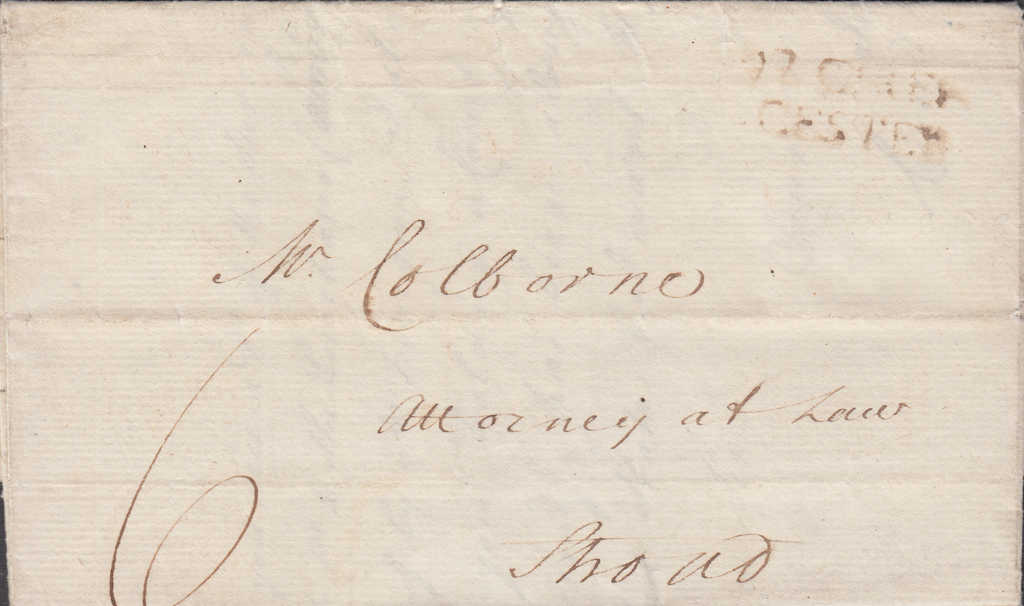 CESTER
Mr. Colborne
Attorney at Law
Stroud
6